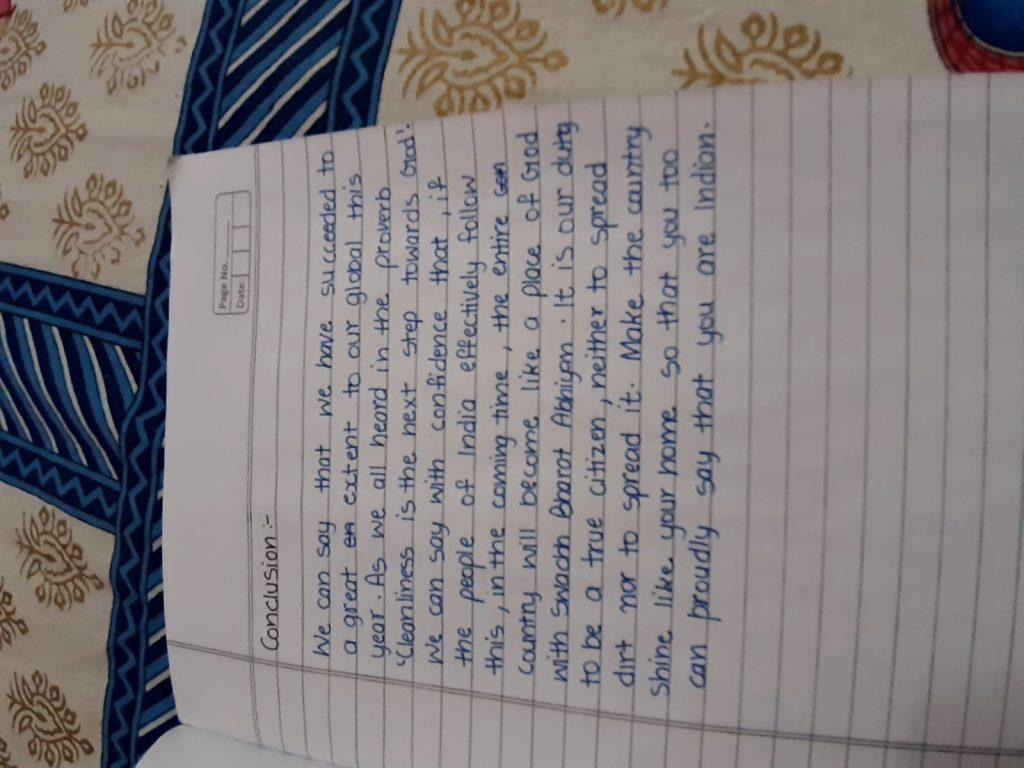 Page No.
Date:
Conclusion :-
We can say that we have succeeded to
a great extent to our global this
year. As we all heard in the proverb
'Cleanliness is the next step towards God'.
We can say with confidence that, if
the people of India effectively follow
this, in the coming time, the entire
country will become like a place of God
with Swachh Bharat Abhiyan. It is our duty
to be a true citizen, neither to spread
dirt nor to spread it. Make the country
shine like your home so that you too
can proudly say that you are Indian.